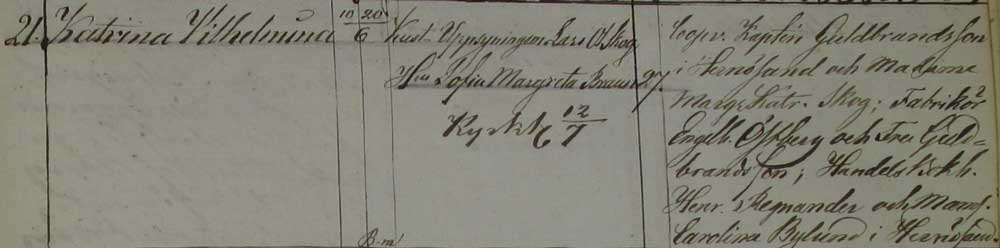 21. Katrina Vilhelmina 10 20/6 Kust Uppsyningsm Lars Ol. Skog
Hu Sofia Margreta Braun 27.
Kyrkt 12/7
Capv. Kapten Guldbrandsson
i Hernösand och Madame
Marg. Katr. Skog; Fabrikör
Engelb. Östberg och Fru Guld=
brandsson; Handels Bokh.
Henr. Regnander och Mams.
Carolina Bylund i Hernösand
B. m